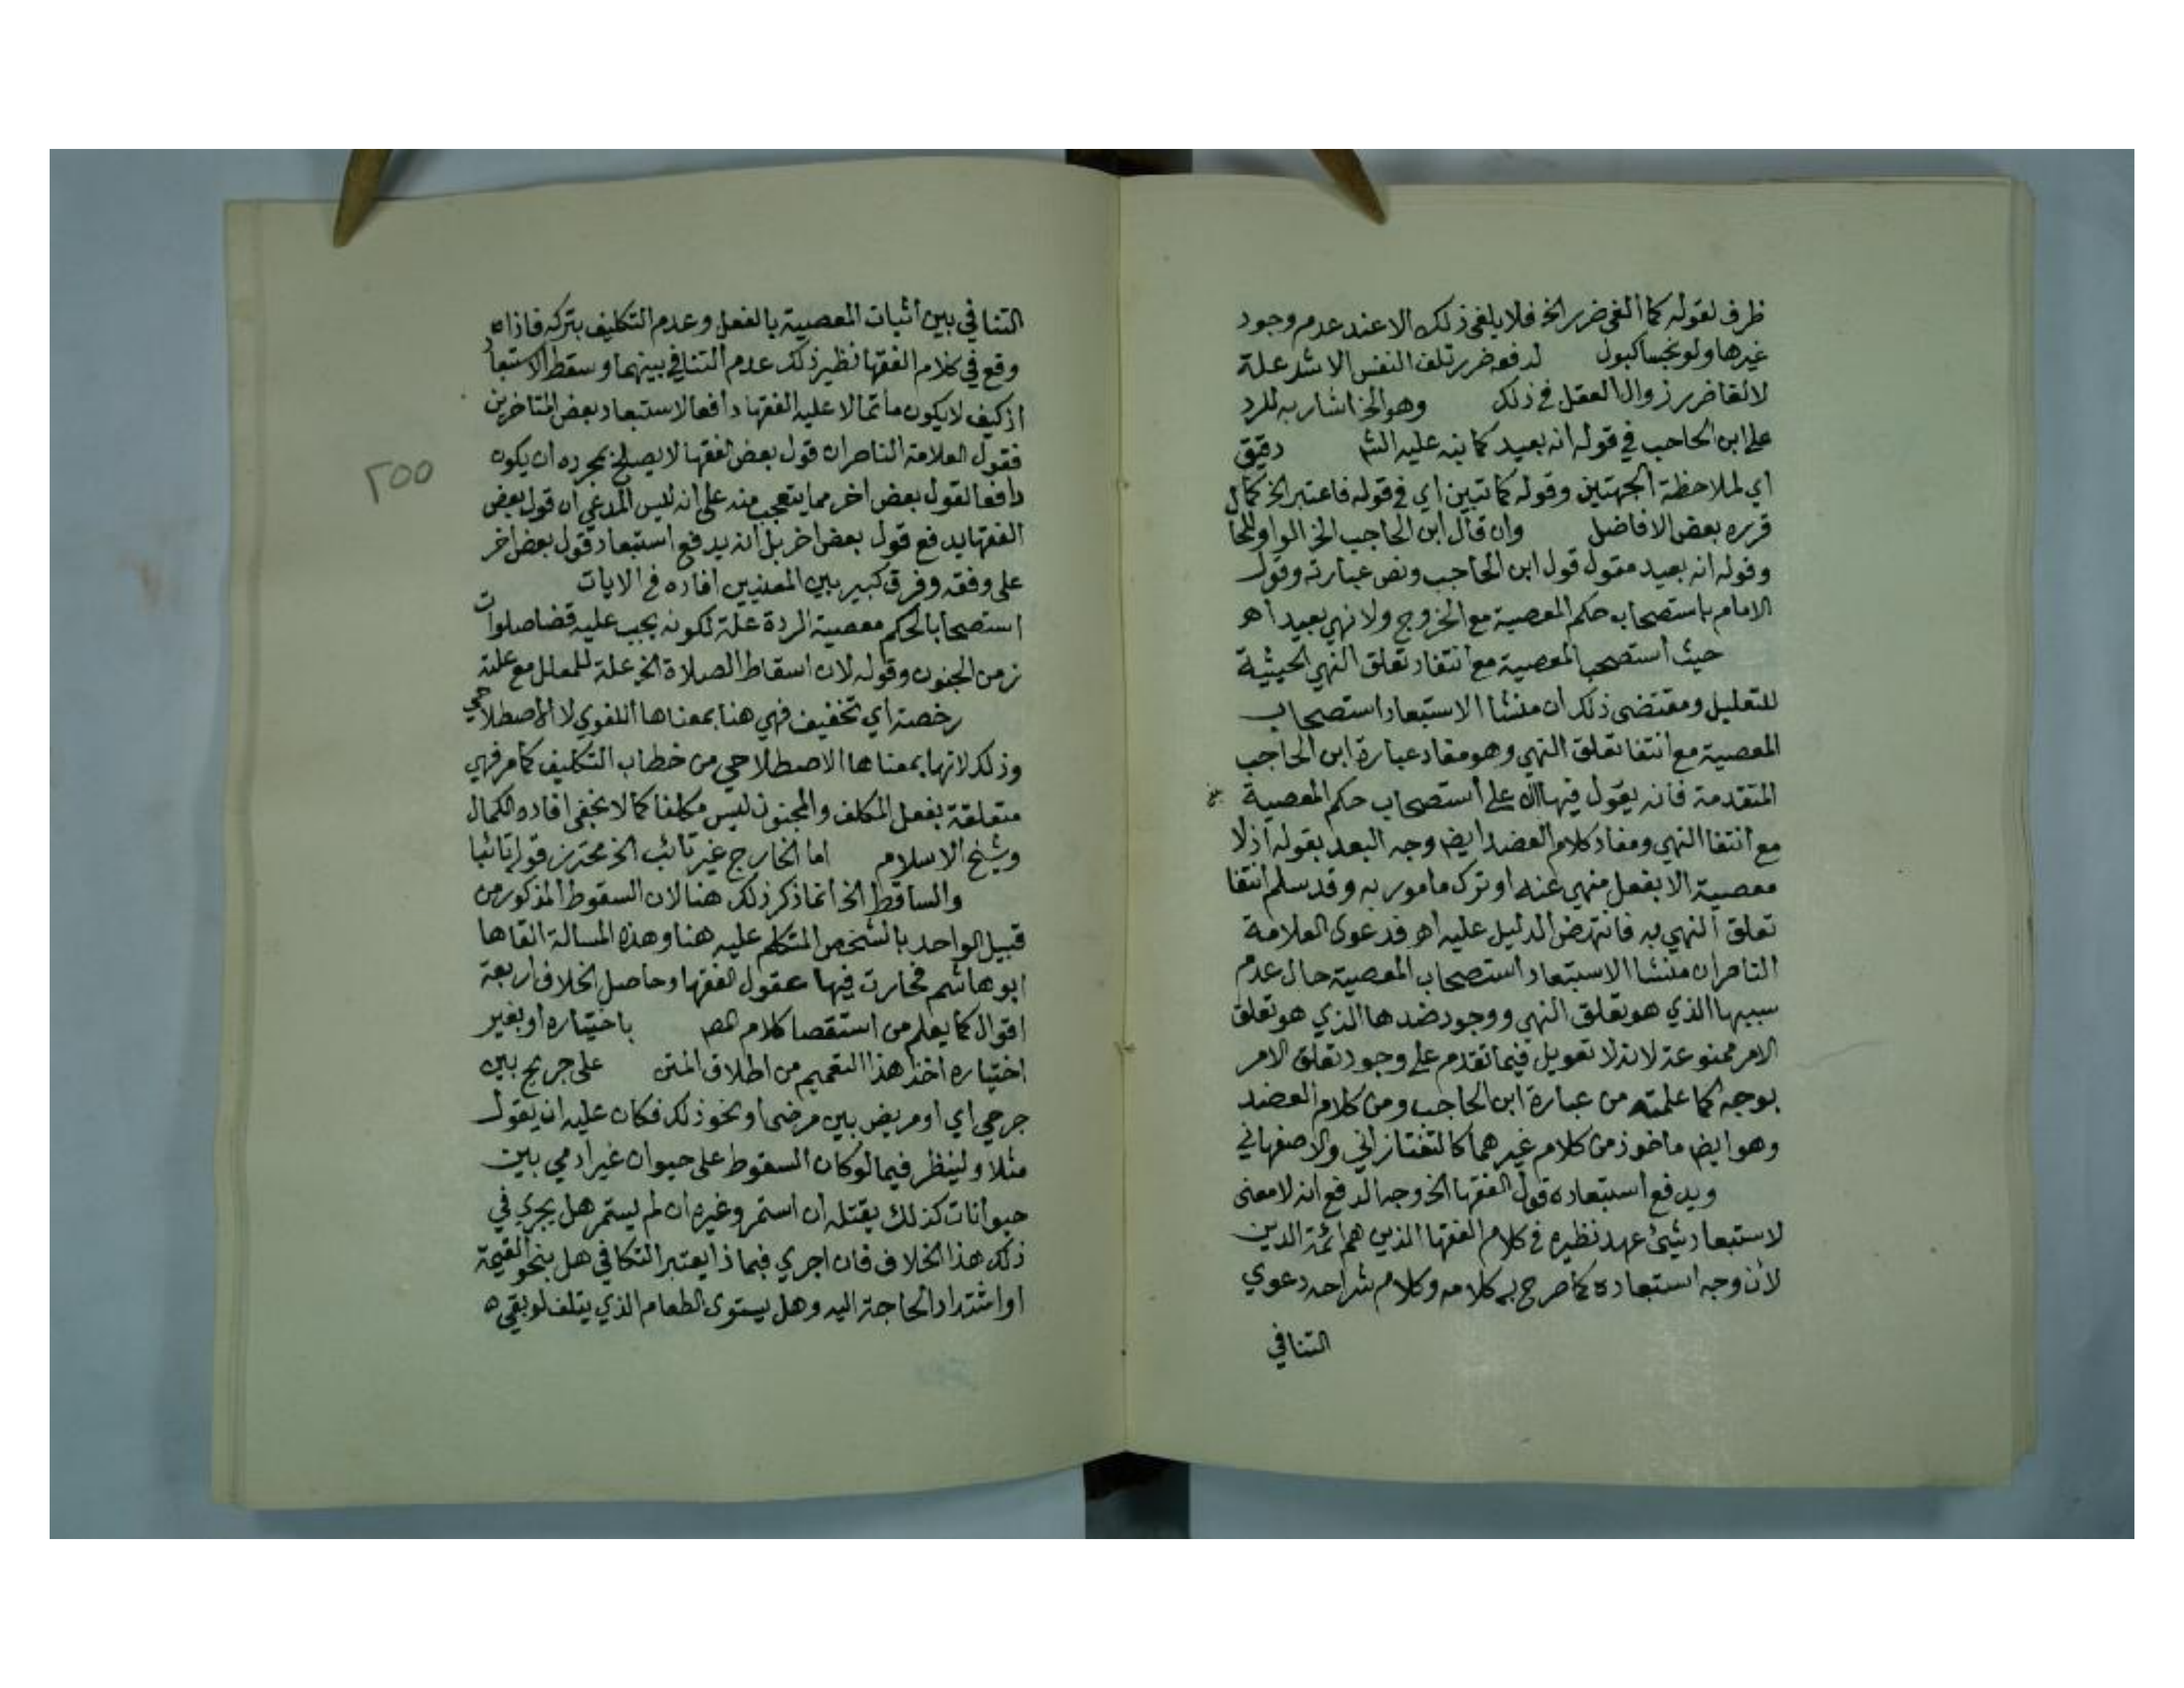 ظرف لقوله كما ألغي ضرر الخ فلا يلغي ذلك الا عند عدم وجود
غيرها ولو نجسا كبول لدفعه ضرر تلف النفس الاشد علة
لالقا ضرر زوال العقل في ذلك وهو الخ اشار به للرد
على ابن الحاجب في قوله انه بعيد كما ينه عليه الش دقيق
اي لملاحظة الجهتين وقوله كما تبين اي في قوله فاعتبر الخ كما
قرره بعض الافاضل وان قال ابن الحاجب الخ الواو للحا
وقوله انه بعيد مقول قول ابن الحاجب ونص عبارته وقول
الامام باستصحاب حكم المعصية مع الخروج ولا نهي بعيد اهـ
حيث استصحب المعصية مع انتفاء تعلق النهي الحيثية
للتعليل ومقتضى ذلك ان منشا الاستبعاد استصحاب
المعصية مع انتفا تعلق النهي وهو مفاد عبارة ابن الحاجب
المتقدمة فانه يقول فيها على استصحاب حكم المعصية
مع انتفا النهي ومفاد كلام العضد ايض وجه البعد بقوله اذ لا
معصية الا بفعل منهي عنه او ترك مامور به وقد سلم انتفا
تعلق النهي به فانتهض الدليل عليه اهـ فدعوى العلامة
الناصر ان منشا الاستبعاد استصحاب المعصية حال عدم
سببها الذي هو تعلق النهي ووجود ضدها الذي هو تعلق
الامر ممنوعة لانه لا تعويل فيما تقدم على وجود تعلق الامر
بوجه كما علمته من عبارة ابن الحاجب ومن كلام العضد
وهو ايض ماخوذ من كلام غيرهما كالتفتازاني والاصفهاني
ويدفع استبعاده قول الفقها الخ وجه الدفع انه لا معنى
لاستبعاد شيئ عهد نظيره في كلام الفقها الذين هم ائمة الدين
لأن وجه استبعاده كما صرح به كلامه وكلام شراحه دعوي
التنافي
التنافي بين اثبات المعصية بالفعل وعدم التكليف بتركه فاذا
وقع في كلام الفقها نظير ذلك عدم التنافي بينهما وسقط الاستبعاد
اذ كيف لا يكون ما تمالا عليه الفقها دافعا لاستبعاد بعض المتاخرين
فقول العلامة الناصر ان قول بعض الفقها لا يصلح بمجرده ان يكون
دافعا لقول بعض اخر مما يتعجب منه على انه ليس المدعي ان قول بعض
الفقها يدفع قول بعض اخر بل انه يدفع استبعاد قول بعض اخر
على وفقه وفرق كبير بين المعنيين افاده في الايات
استصحابا لحكم معصية الردة علة لكونه يجب عليه قضا صلوات
زمن الجنون وقوله لان اسقاط الصلاة الخ علة للمعلل مع علته
رخصة اي تخفيف فهي هنا بمعناها اللغوي لا الاصطلاحي
وذلك لانها بمعناها الاصطلاحي من خطاب التكليف كما مر فهي
متعلقة بفعل المكلف والمجنون ليس مكلفا كما لا يخفى افاده الكمال
وشيخ الاسلام اما الخارج غير تائب الخ محترز قوله تائبا
والساقط الخ انما ذكر ذلك هنا لان السقوط المذكور من
قبيل الواحد بالشخص المتكلم عليه هنا وهذه المسالة القاها
ابو هاشم فحارت فيها عقول الفقها وحاصل الخلاف اربعة
اقوال كما يعلم من استقصا كلام المص باختياره او بغير
اختياره اخذ هذا التعميم من اطلاق المتن على جريح بين
جرحي اي او مريض بين مرضى او نحو ذلك فكان عليه ان يقول
مثلا ولينظر فيما لو كان السقوط على حيوان غير ادمي بين
حيوانات كذلك يقتله ان استمر وغيره ان لم يستمر هل يجري في
ذلك هذا الخلاف فان اجري فبماذا يعتبر التكافي هل بنحو القيمة
او اشتداد الحاجة اليه وهل يستوى الطعام الذي يتلف لو بقي
٢٥٥